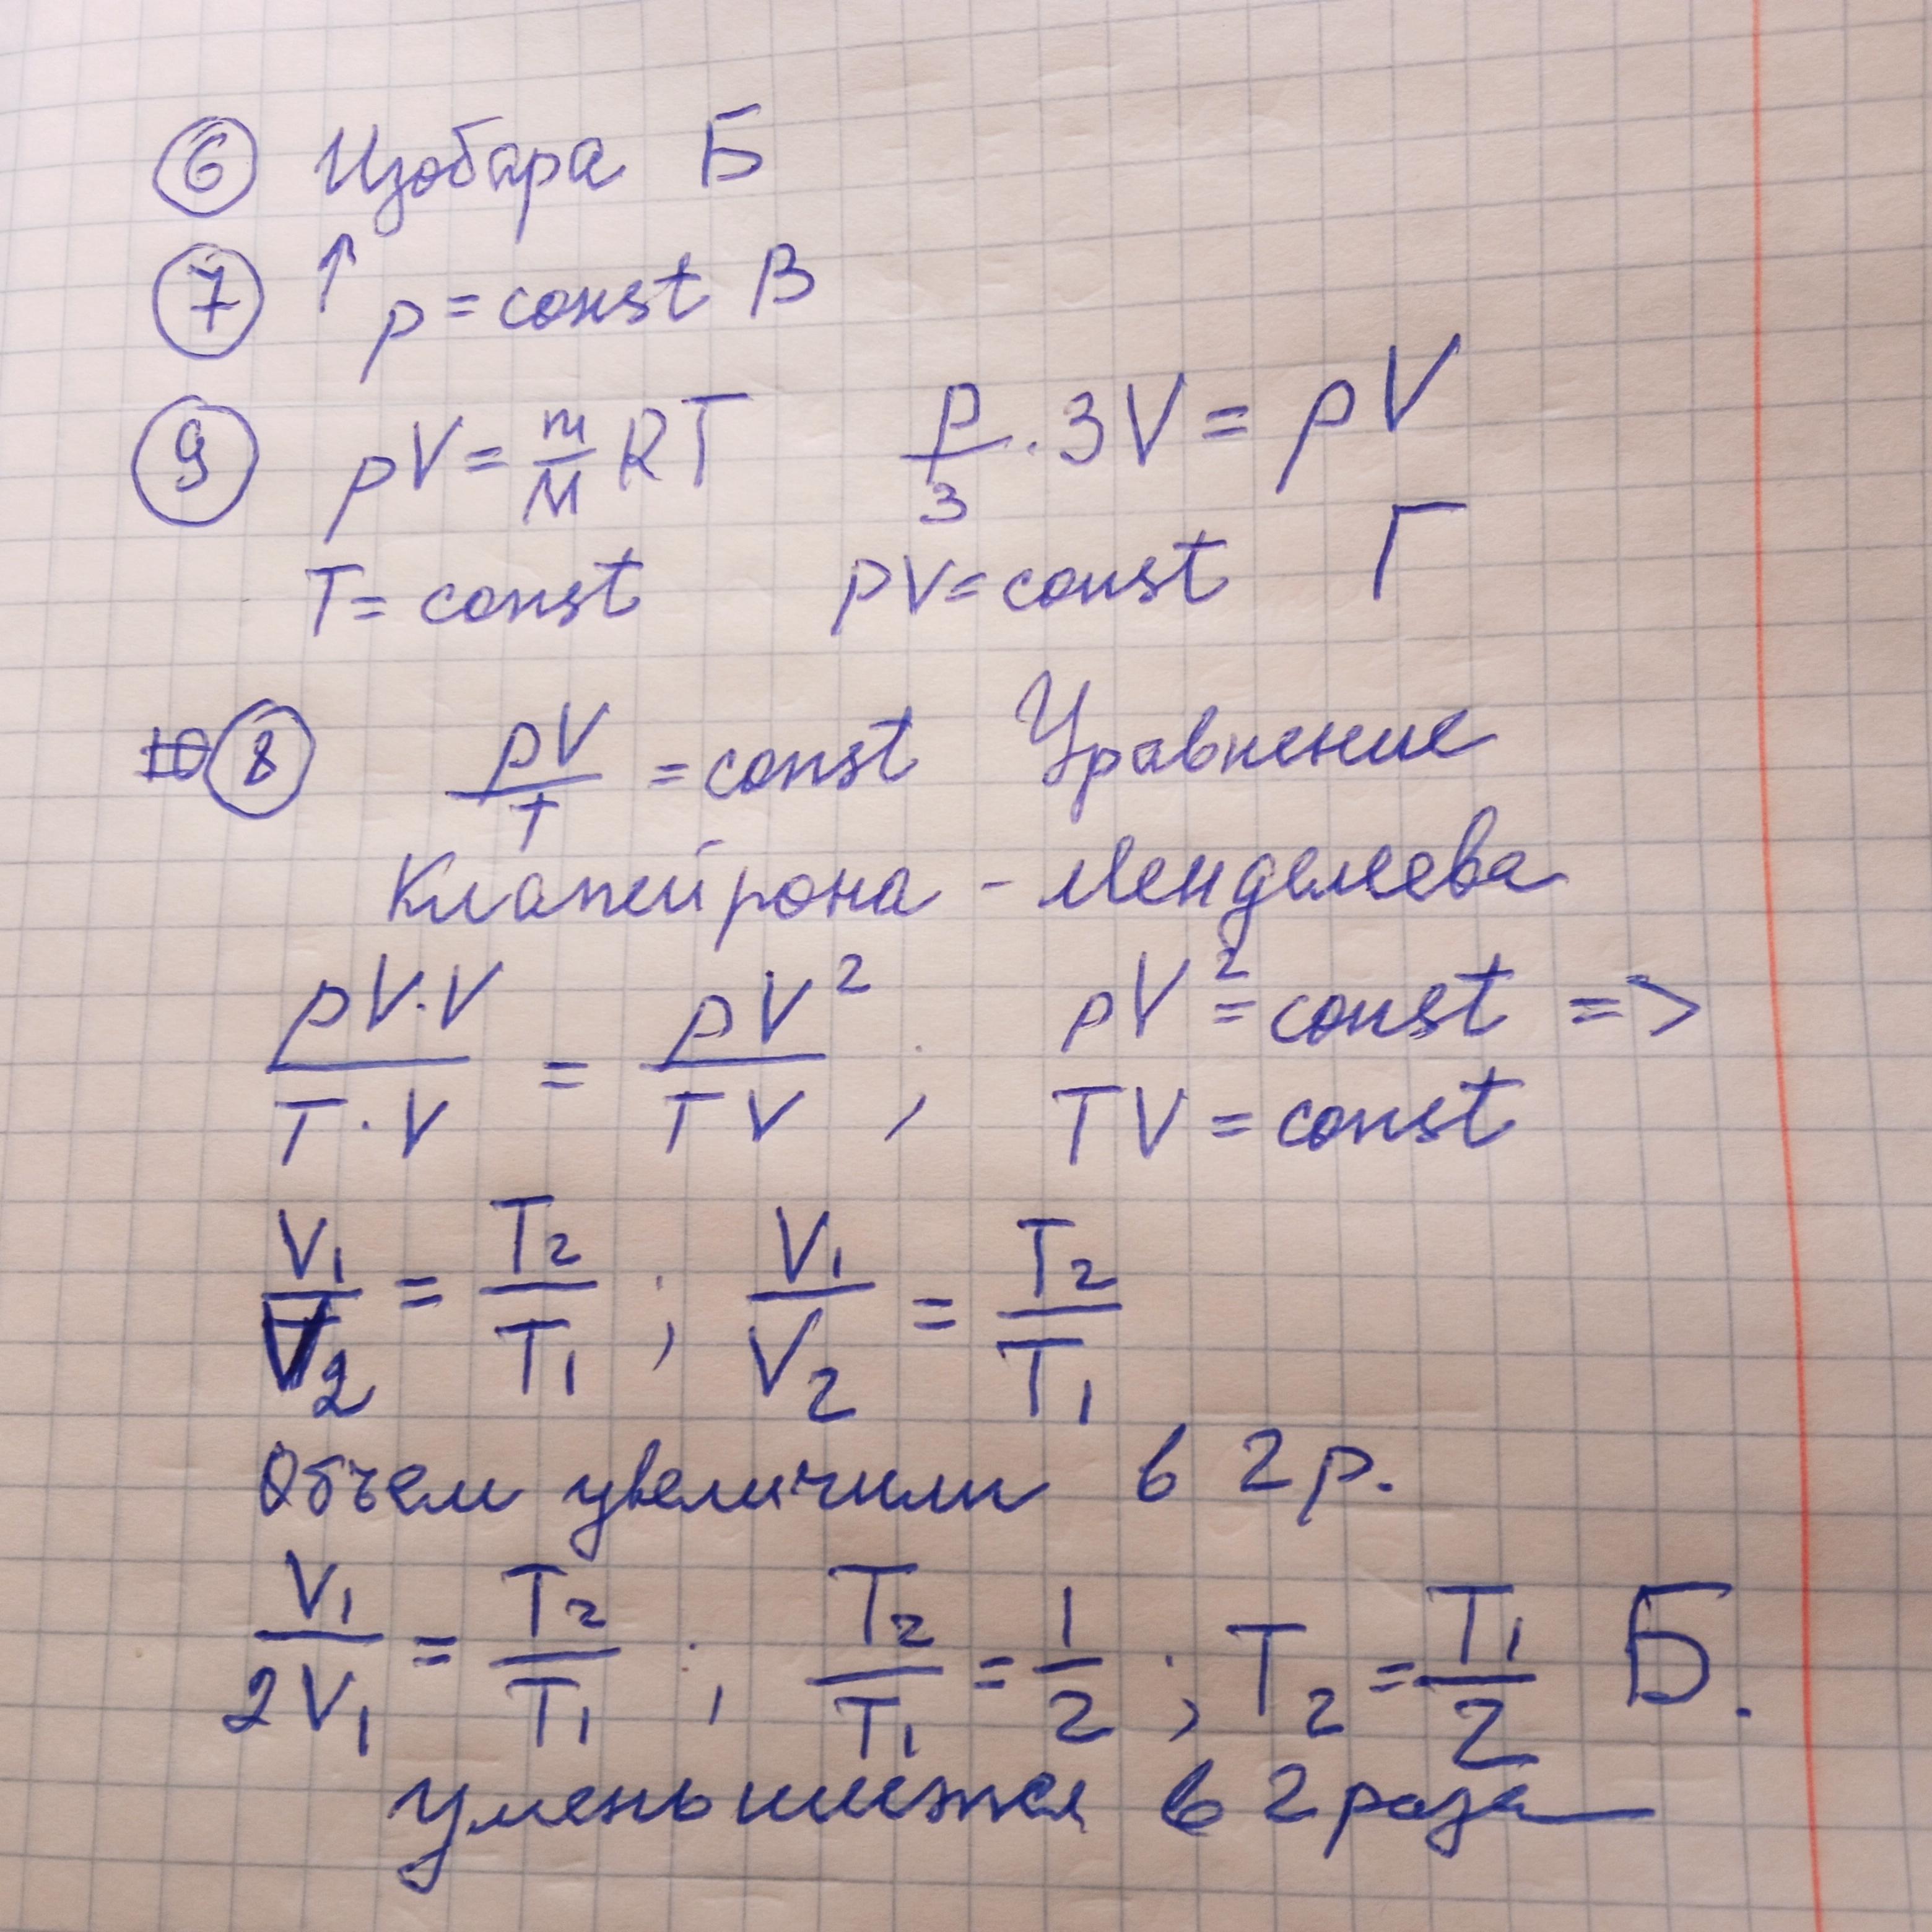 ⑥ Изобара Б
⑦ ↑ p = const В
⑨ pV = m/M RT p/3 · 3V = pV
T = const pV = const Г
⑧ pV/T = const Уравнение
Клапейрона - Менделеева
pV·V/T·V = pV²/TV ; pV² = const =>
TV = const
V₁/V₂ = T₂/T₁ ; V₁/V₂ = T₂/T₁
Объем увеличили в 2 р.
V₁/2V₁ = T₂/T₁ ; T₂/T₁ = 1/2 ; T₂ = T₁/2 Б.
уменьшится в 2 раза